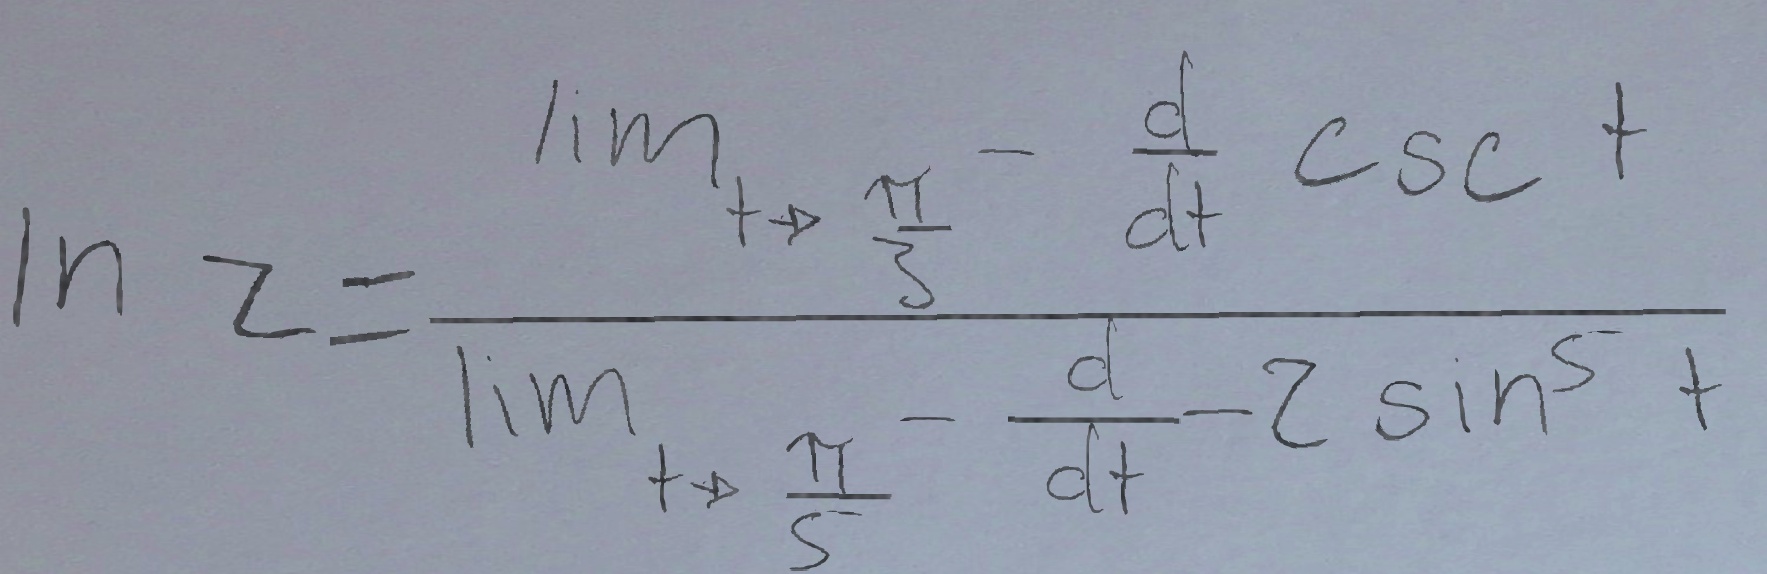 ln z = \frac{\lim_{t \to \frac{\pi}{3}} - \frac{d}{dt} \csc t}{\lim_{t \to \frac{\pi}{5}} - \frac{d}{dt} - 2 \sin^5 t}